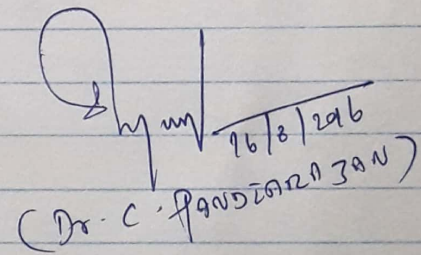 16/8/2016
(Dr. C. PANDIARAJAN)